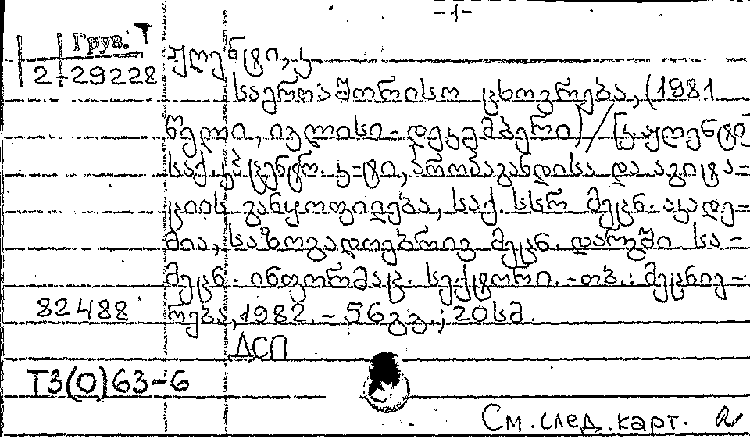 -1-
Груз. Т
2-29228
ჟღენტი, კ
საერთაშორისო ცხოვრება, (1981
წელი, ივლისი-დეკემბერი) / [კ. ჟღენტი]
საქ. კპ ცენტრ. კ-ტი, პროპაგანდისა და აგიტა-
ციის განყოფილება, საქ. სსრ მეცნ. აკადე-
მია, საზოგადოებრივ მეცნ. დარგში სა-
მეცნ. ინფორმაც. სექტორი. -თბ.: მეცნიე-
82488 რება, 1982. - 56 გვ.; 20 სმ.
ДСП
Т3(0)63-6
См. след. карт.